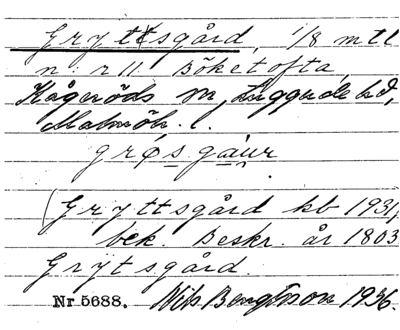 Gryttsgård, 1/8 mtl
n:r 11 Böketofta,
Kågeröds sn, Luggude hd,
Malmöh. l.
grøs gáur
(Gryttsgård kb 1931,
bek. Beskr. år 1803
Grytsgård.
Nr. 5688. Nils Bengtsson 1936.